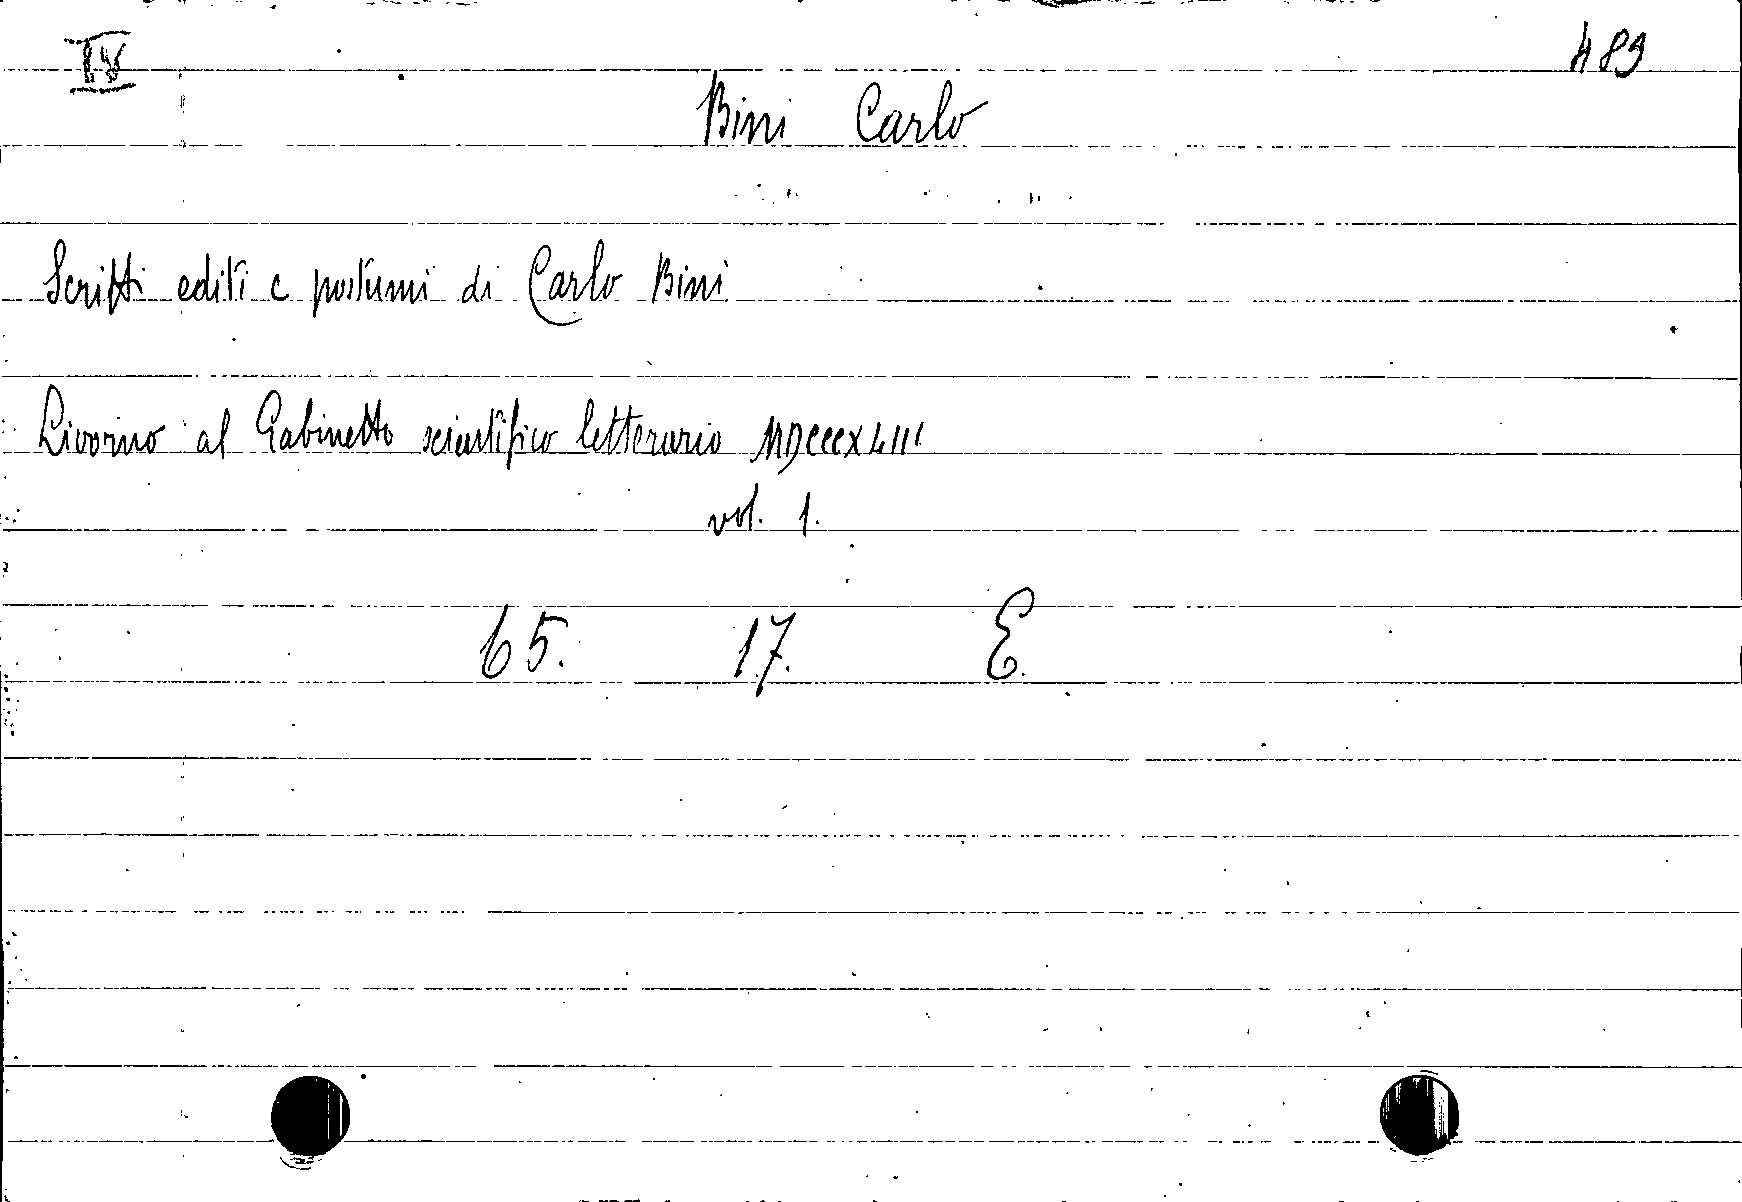 IV 489
Bini Carlo
Scritti editi e postumi di Carlo Bini
Livorno al Gabinetto scientifico letterario MDCCCXLIII
vol. 1.
65. 17. E.